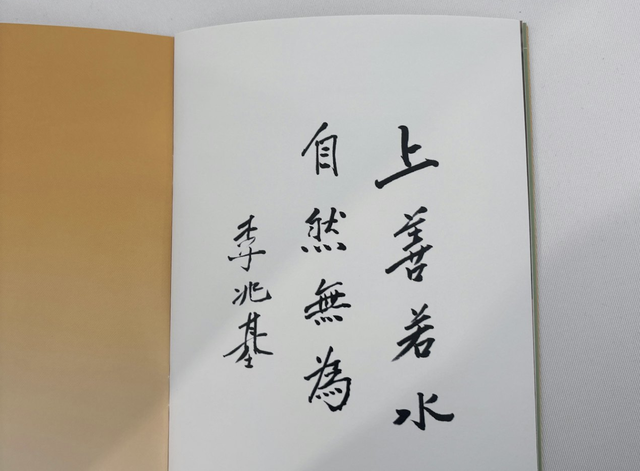 上善若水
自然無為
李兆基